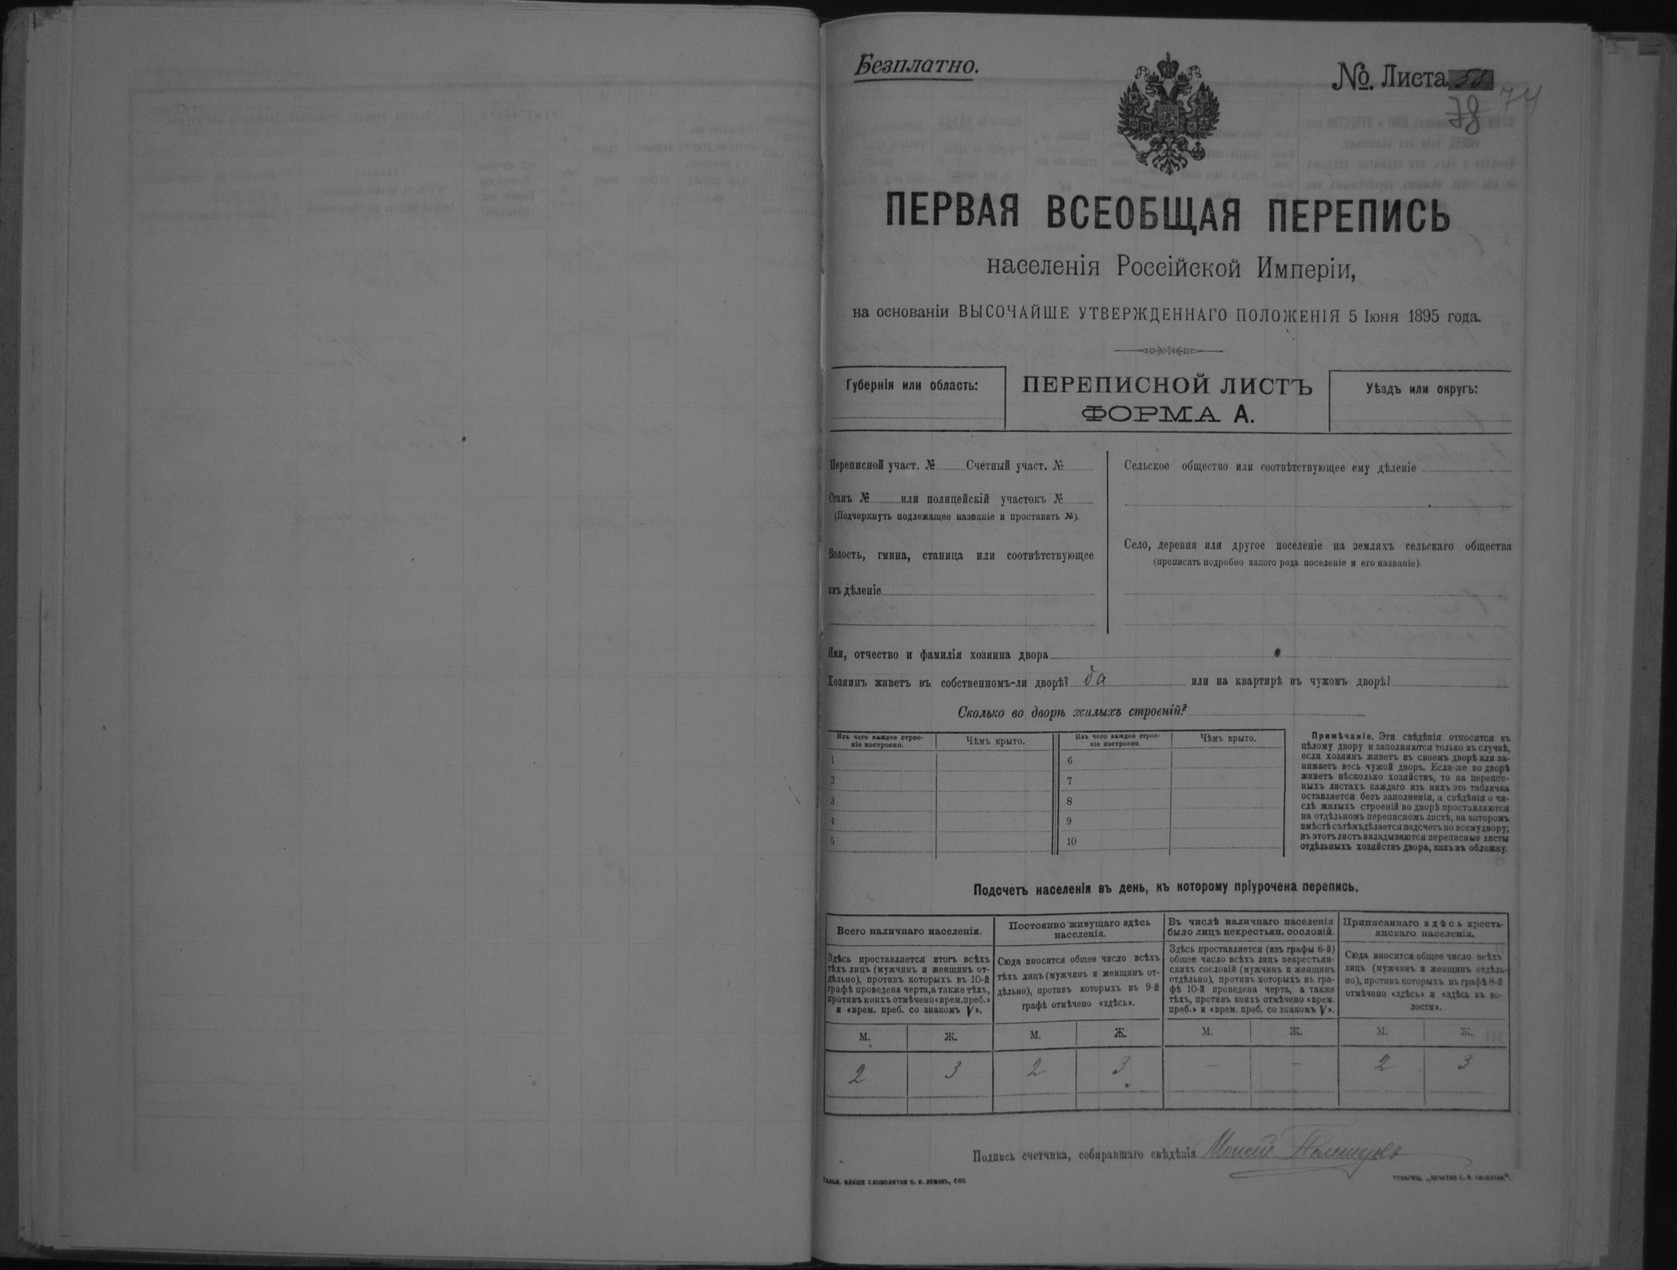 Безплатно.
№. Листа 58
78 74
ПЕРВАЯ ВСЕОБЩАЯ ПЕРЕПИСЬ
населенія Россійской Имперіи,
на основаніи ВЫСОЧАЙШЕ УТВЕРЖДЕННАГО ПОЛОЖЕНІЯ 5 Іюня 1895 года.
Губернія или область:
ПЕРЕПИСНОЙ ЛИСТЪ
ФОРМА А.
Уѣздъ или округъ:
Переписной участ. № Счетный участ. №
Станъ № или полицейскій участокъ №
(Подчеркнуть подлежащее названіе и проставить №).
Волость, гмина, станица или соотвѣтствующее
имъ дѣленіе
Сельское общество или соотвѣтствующее ему дѣленіе
Село, деревня или другое поселеніе на земляхъ сельскаго общества
(прописать подробно какого рода поселеніе и его названіе).
Имя, отчество и фамилія хозяина двора
Хозяинъ живетъ въ собственномъ-ли дворѣ? да или на квартирѣ въ чужомъ дворѣ?
Сколько во дворѣ жилыхъ строеній?
Изъ чего каждое строе-
ніе построено.
Чѣмъ крыто.
1
2
3
4
5
Изъ чего каждое строе-
ніе построено.
Чѣмъ крыто.
6
7
8
9
10
Примѣчаніе. Эти свѣдѣнія относятся къ
цѣлому двору и заполняются только въ случаѣ,
если хозяинъ живетъ въ своемъ дворѣ или за-
нимаетъ весь чужой дворъ. Если-же во дворѣ
живетъ нѣсколько хозяйствъ, то на перепис-
ныхъ листахъ каждаго изъ нихъ эта табличка
оставляется безъ заполненія, а свѣдѣнія о чи-
слѣ жилыхъ строеній во дворѣ проставляются
на отдѣльномъ переписномъ листѣ, на которомъ
вмѣстѣ съ тѣмъ дѣлается подсчетъ по всему двору;
въ этотъ листъ вкладываются переписные листы
отдѣльныхъ хозяйствъ двора, какъ въ обложку.
Подсчетъ населенія въ день, къ которому пріурочена перепись.
Всего наличнаго населенія.
Здѣсь проставляется итогъ всѣхъ
тѣхъ лицъ (мужчинъ и женщинъ от-
дѣльно), противъ которыхъ въ 10-й
графѣ проведена черта, а также тѣхъ,
противъ коихъ отмѣчено «врем. преб.»
и «врем. преб. со знакомъ V».
М. Ж.
2 3
Постоянно живущаго здѣсь
населенія.
Сюда вносится общее число всѣхъ
тѣхъ лицъ (мужчинъ и женщинъ от-
дѣльно), противъ которыхъ въ 9-й
графѣ отмѣчено «здѣсь».
М. Ж.
2 3
Въ числѣ наличнаго населенія
было лицъ некрестьян. сословій.
Здѣсь проставляется (изъ графы 6-й)
общее число всѣхъ лицъ некрестьян-
скихъ сословій (мужчинъ и женщинъ
отдѣльно), противъ которыхъ въ гра-
фѣ 10-й проведена черта, а также
тѣхъ, противъ коихъ отмѣчено «врем.
преб.» и «врем. преб. со знакомъ V».
М. Ж.
– –
Приписаннаго здѣсь кресть-
янскаго населенія.
Сюда вносится общее число всѣхъ
лицъ (мужчинъ и женщинъ отдѣль-
но), противъ которыхъ въ графѣ 8-й
отмѣчено «здѣсь» и «здѣсь въ во-
лости».
М. Ж.
2 3
Подпись счетчика, собиравшаго свѣдѣнія Моисей Полищукъ